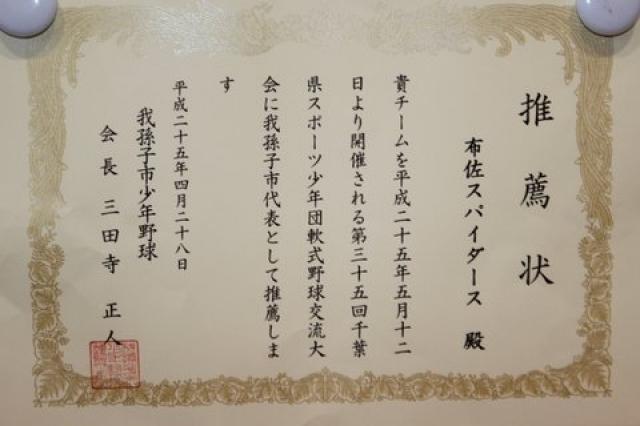 推薦状
布佐スパイダース 殿
貴チームを平成二十五年五月十二
日より開催される第三十五回千葉
県スポーツ少年団軟式野球交流大
会に我孫子市代表として推薦しま
す
平成二十五年四月二十八日
我孫子市少年野球
会長 三田寺 正人